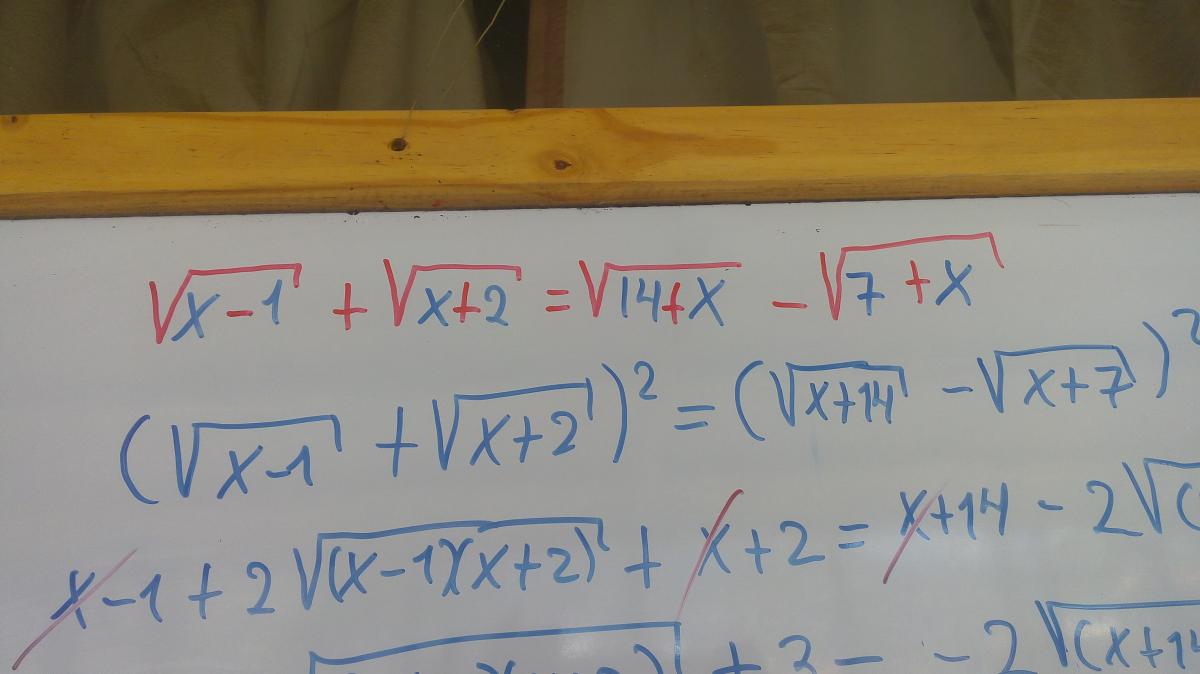 √(x-1) + √(x+2) = √(14+x) - √(7+x)
(√(x-1) + √(x+2))² = (√(x+14) - √(x+7))²
x-1 + 2√((x-1)(x+2)) + x+2 = x+14 - 2√(
+ 2√(x+14